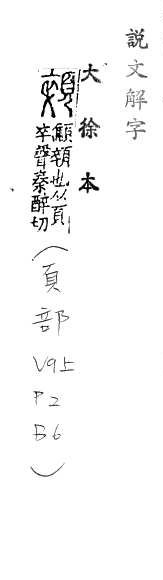 說文解字
大徐本
顇
顦顇也从頁
卒聲秦醉切
(頁部
V9上
P2
B6)